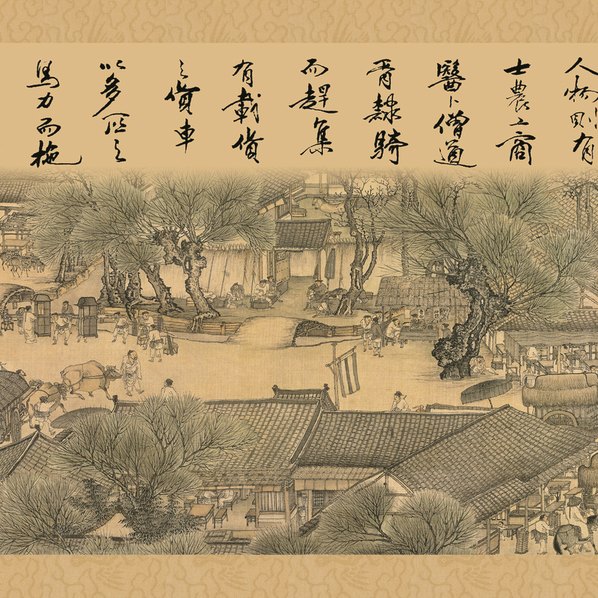 人物則有
士農工商
醫卜僧道
胥隸騎
而趕集
有載貨
之貨車
以多匹之
馬力而拖